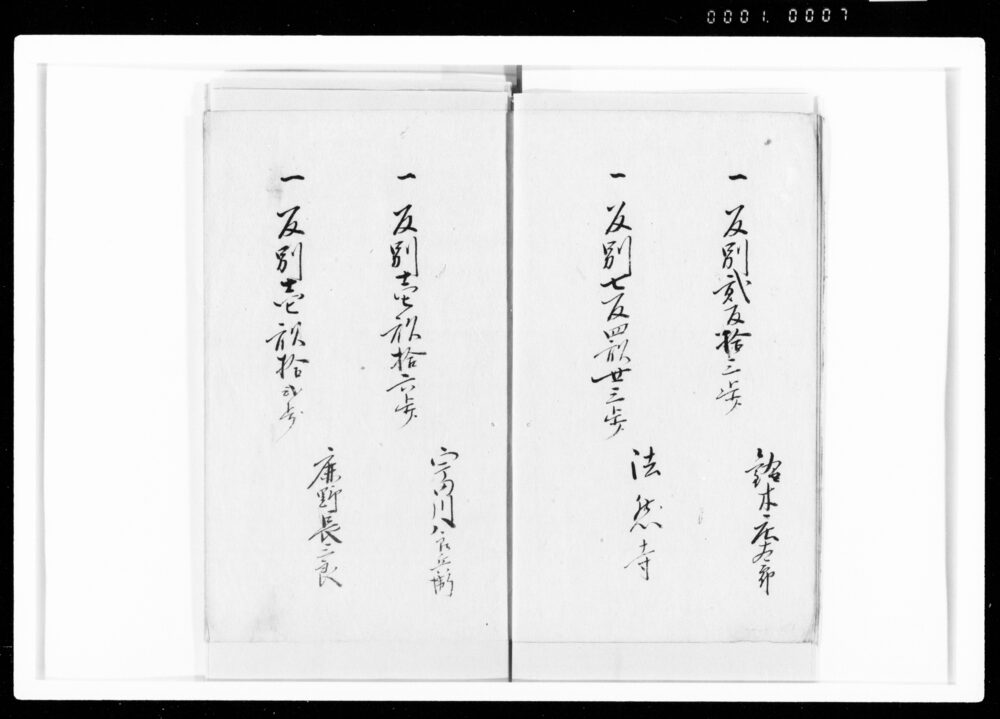 0001. 0007
一 反別貳反拾三歩
鈴木庄右郎
一 反別七反四畝廿三歩
法然寺
一 反別壱畝拾六歩
宇田川八兵衛
一 反別壱畝拾弐歩
鹿野長三良